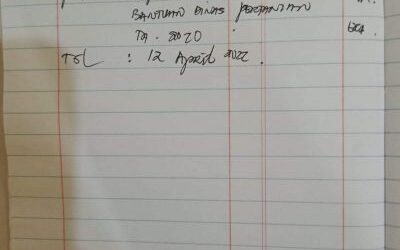 BANTUAN DINAS PERTANIAN
TA. 2020
TGL : 12 April 2022.